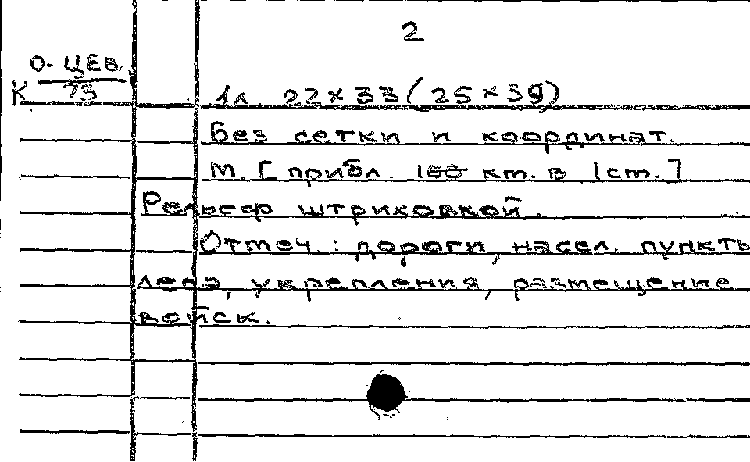 2
О. ЦЕВ.
К 73
1 л. 22×33 (25×39)
Без сетки и координат.
М. [прибл. км. в 1 см.]
Рельеф штриховкой.
Отмеч.: дороги, насел. пункты
леса, укрепления, размещение
войск.